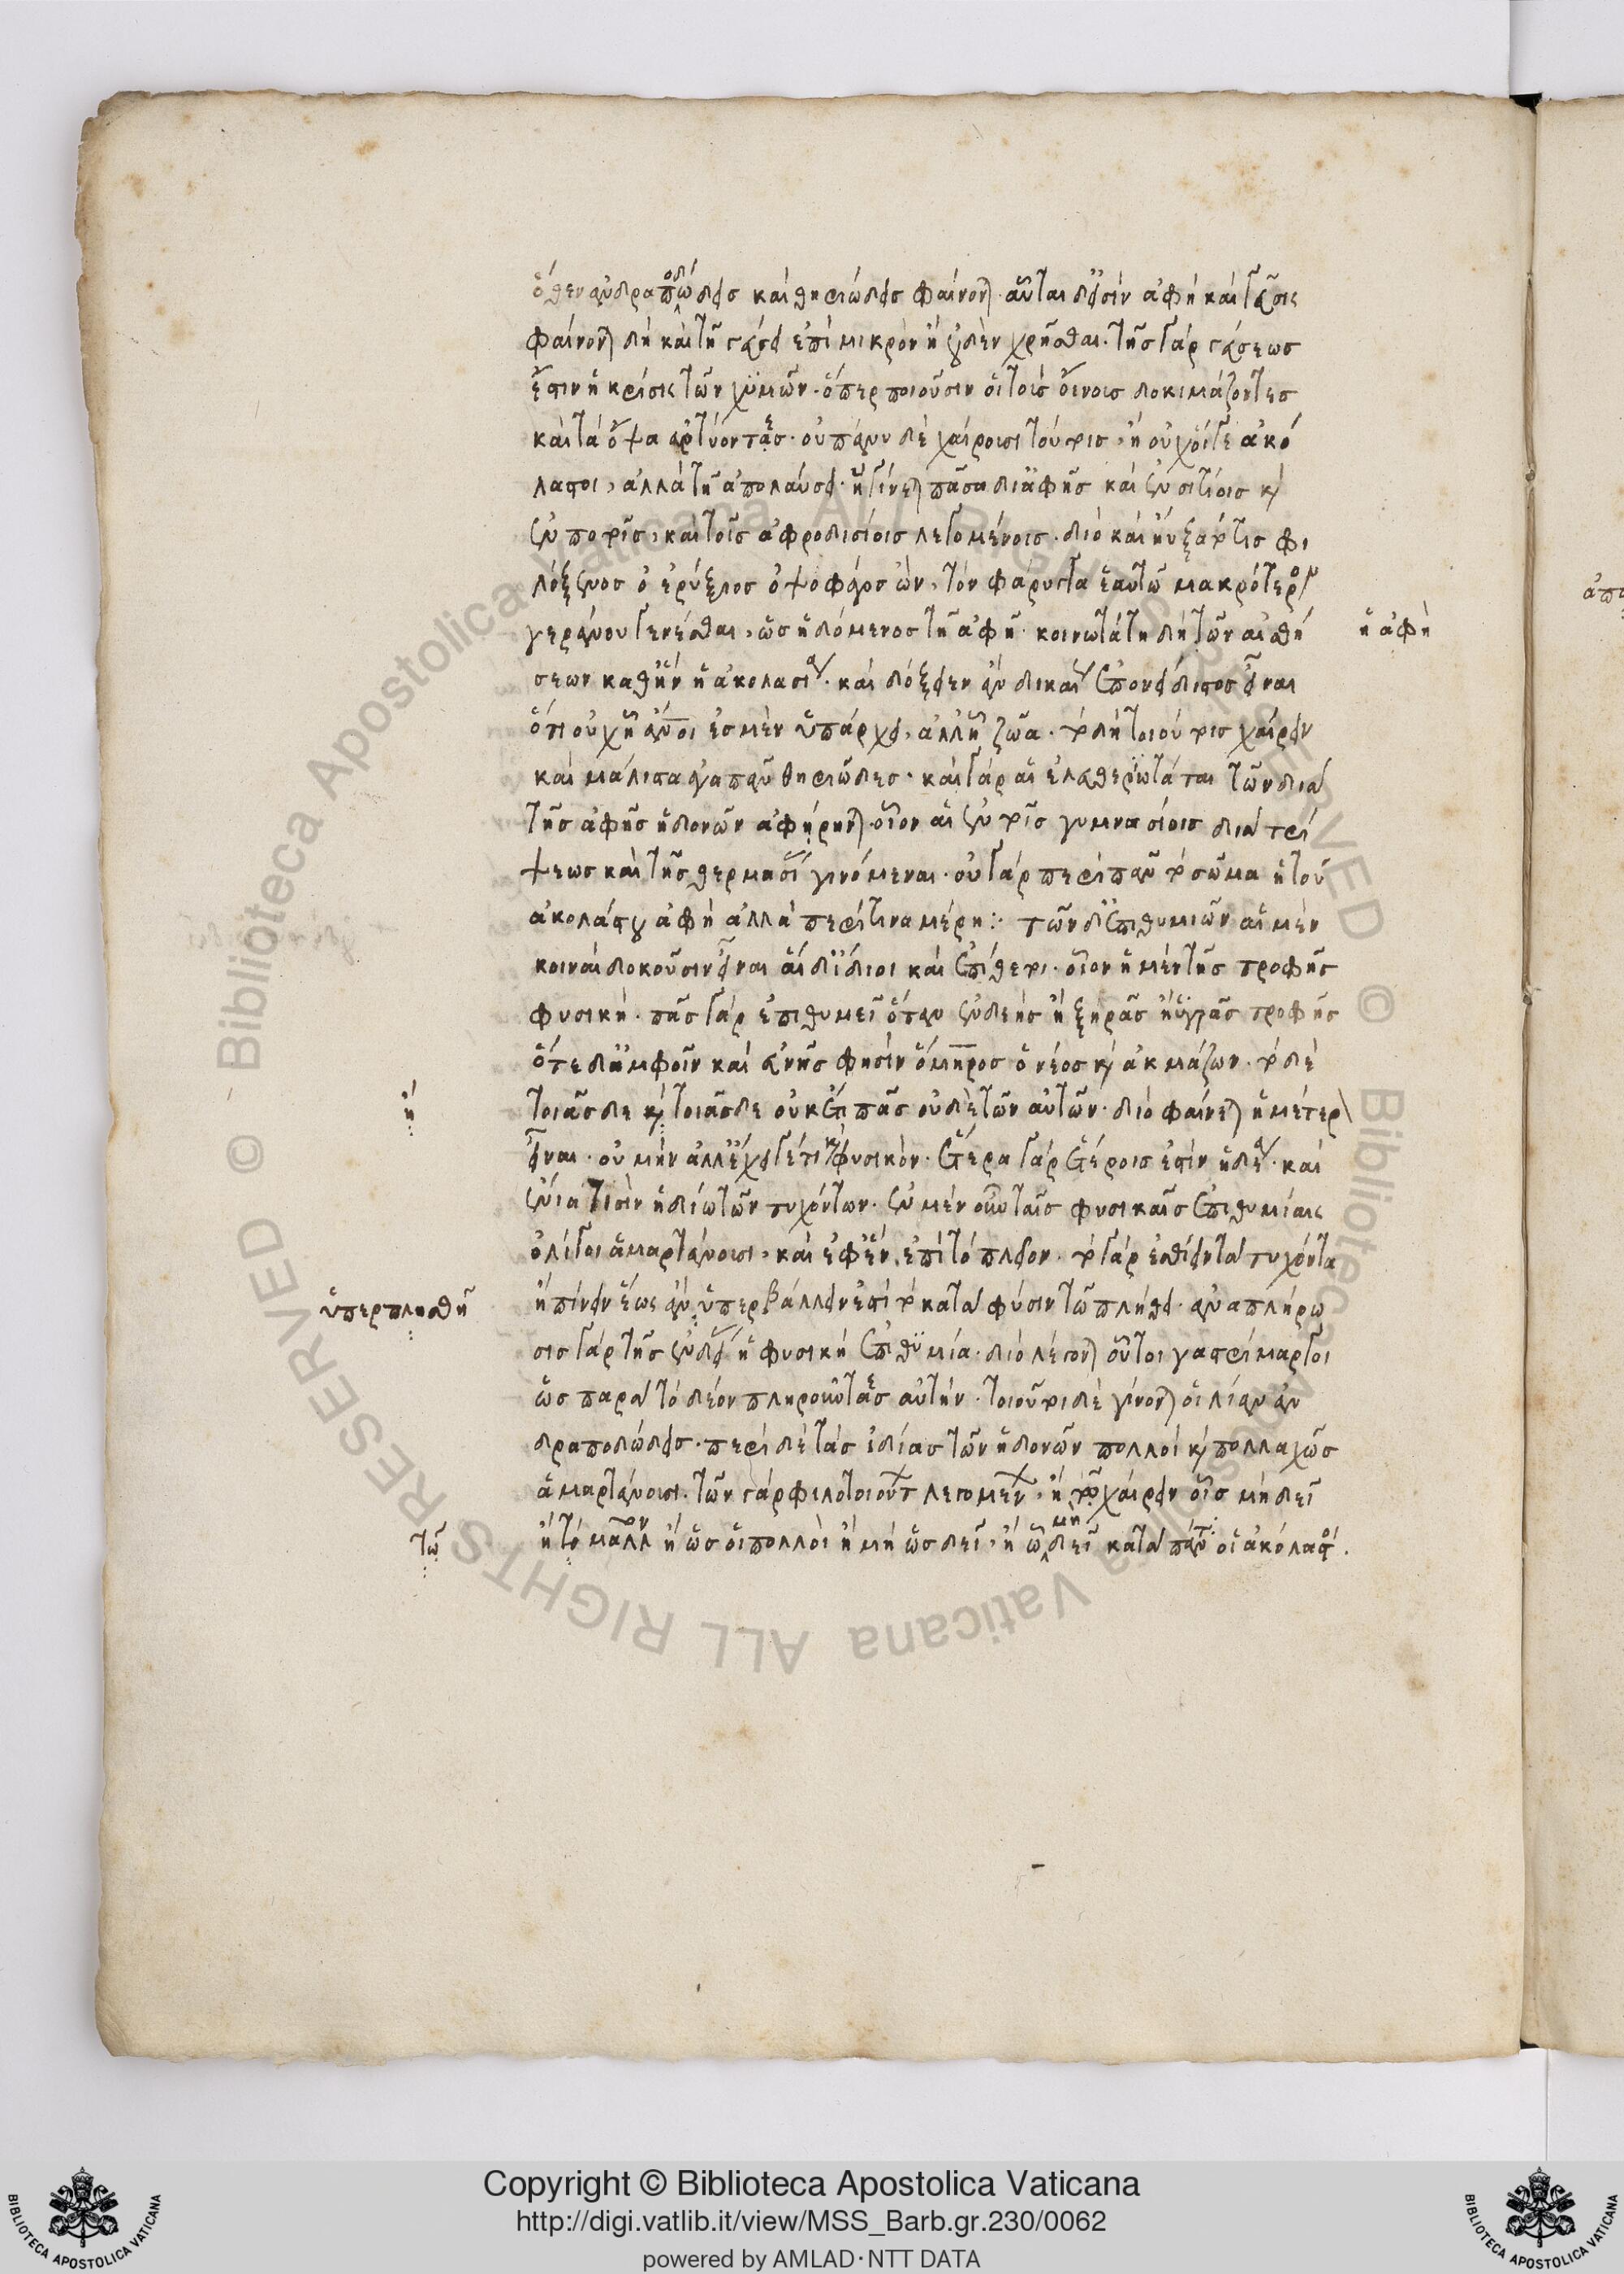 ὅθεν ἀνδραποδώδεις καὶ θηριώδεις φαίνονται. αὗται δ᾽ εἰσὶν ἁφὴ καὶ γεῦσις
φαίνονται δὴ καὶ τῇ γεύσει ἐπὶ μικρὸν ἢ οὐδὲν χρῆσθαι. τῆς γὰρ γεύσεως
ἔστιν ἡ κρίσις τῶν χυμῶν. ὅπερ ποιοῦσιν οἱ τοὺς οἴνους δοκιμάζοντες
καὶ τὰ ὄψα ἀρτύοντες. οὐ πάνυ δὲ χαίρουσι τούτοις, ἢ οὐχ οἵ γε ἀκό
λαστοι, ἀλλὰ τῇ ἀπολαύσει. ἣ γίνεται πᾶσα δι᾽ ἁφῆς καὶ ἐν σιτίοις καὶ
ἐν ποτοῖς, καὶ τοῖς ἀφροδισίοις λεγομένοις. διὸ καὶ ηὔξατό τις φι
λόξενος ὁ ἐρύξιος ὀψοφάγος ὤν, τὸν φάρυγγα ἑαυτῶ μακρότερον
γεράνου γενέσθαι, ὡς ἡδόμενος τῇ ἁφῇ. κοινωτάτη δὴ τῶν αἰσθή
ἡ ἁφὴ
σεων καθ᾽ ἣν ἡ ἀκολασία. καὶ δόξειεν ἂν δικαίως ἐπονείδιστος εἶναι
ὅτι οὐχ ᾗ ἄνοι ἐσμὲν ὑπάρχει, ἀλλ᾽ ᾗ ζῶα. τὸ δὴ τοιούτοις χαίρειν
καὶ μάλιστα ἀγαπᾶν θηριῶδες. καὶ γὰρ αἱ ἐλευθεριώταται τῶν διὰ
τῆς ἁφῆς ἡδονῶν ἀφήρηνται. οἷον αἱ ἐν τοῖς γυμνασίοις διὰ τρί
ψεως καὶ τῆς θερμασίας γινόμεναι. οὐ γὰρ περὶ πᾶν τὸ σῶμα ἡ τοῦ
ἀκολάστου ἁφὴ ἀλλὰ περί τινα μέρη: τῶν δ᾽ ἐπιθυμιῶν αἱ μὲν
κοιναὶ δοκοῦσιν εἶναι αἱ δ᾽ ἴδιοι καὶ ἐπίθετοι. οἷον ἡ μὲν τῆς τροφῆς
φυσική. πᾶς γὰρ ἐπιθυμεῖ ὅταν ἐνδεὴς ἢ ξηρᾶς ἢ ὑγρᾶς τροφῆς
ὁτὲ δ᾽ ἀμφοῖν καὶ εὐνῆς φησὶν ὅμηρος ὁ νέος καὶ ἀκμάζων. τὸ δὲ
ἢ
τοιᾶσδε καὶ τοιᾶσδε οὐκέτι πᾶς οὐδὲ τῶν αὐτῶν. διὸ φαίνεται ἡμέτερον
εἶναι. οὐ μὴν ἀλλ᾽ ἔχει γέ τι καὶ φυσικόν. ἕτερα γὰρ ἑτέροις ἐστὶν ἡδέα. καὶ
ἔνια τισὶν ἡδίω τῶν τυχόντων. ἐν μὲν οὖν ταῖς φυσικαῖς ἐπιθυμίαις
ὀλίγοι ἁμαρτάνουσι, καὶ ἐφ᾽ ἕν, ἐπὶ τὸ πλεῖον. τὸ γὰρ ἐσθίειν τὰ τυχόντα
ὑπερπλησθῆ
ἢ πίνειν ἕως ἂν ὑπερβάλλειν ἐστὶ τὸ κατὰ φύσιν τῶ πλήθει. ἀναπλήρω
σις γὰρ τῆς ἐνδείας ἡ φυσικὴ ἐπιθυμία. διὸ λέγονται οὗτοι γαστρίμαργοι
ὡς παρὰ τὸ δέον πληροῦντες αὐτήν. τοιοῦτοι δὲ γίνονται οἱ λίαν ἀν
δραποδώδεις. περὶ δὲ τὰς ἰδίας τῶν ἡδονῶν πολλοὶ καὶ πολλαχῶς
ἁμαρτάνουσι. τῶν γὰρ φιλοτοιούτων λεγομένων, ἢ τῶ χαίρειν οἷς μὴ δεῖ
τῶ
ἢ τὸ μᾶλλον ἢ ὡς οἱ πολλοὶ ἢ μὴ ὡς δεῖ, ἢ ὧ μὴ δεῖ κατὰ πάντα οἱ ἀκόλαστοι.
Copyright © Biblioteca Apostolica Vaticana
http://digi.vatlib.it/view/MSS_Barb.gr.230/0062
powered by AMLAD·NTT DATA
BIBLIOTECA APOSTOLICA VATICANA
BIBLIOTECA APOSTOLICA VATICANA
© Biblioteca Apostolica Vaticana ALL RIGHTS RESERVED © Biblioteca Apostolica Vaticana ALL RIGHTS RESERVED